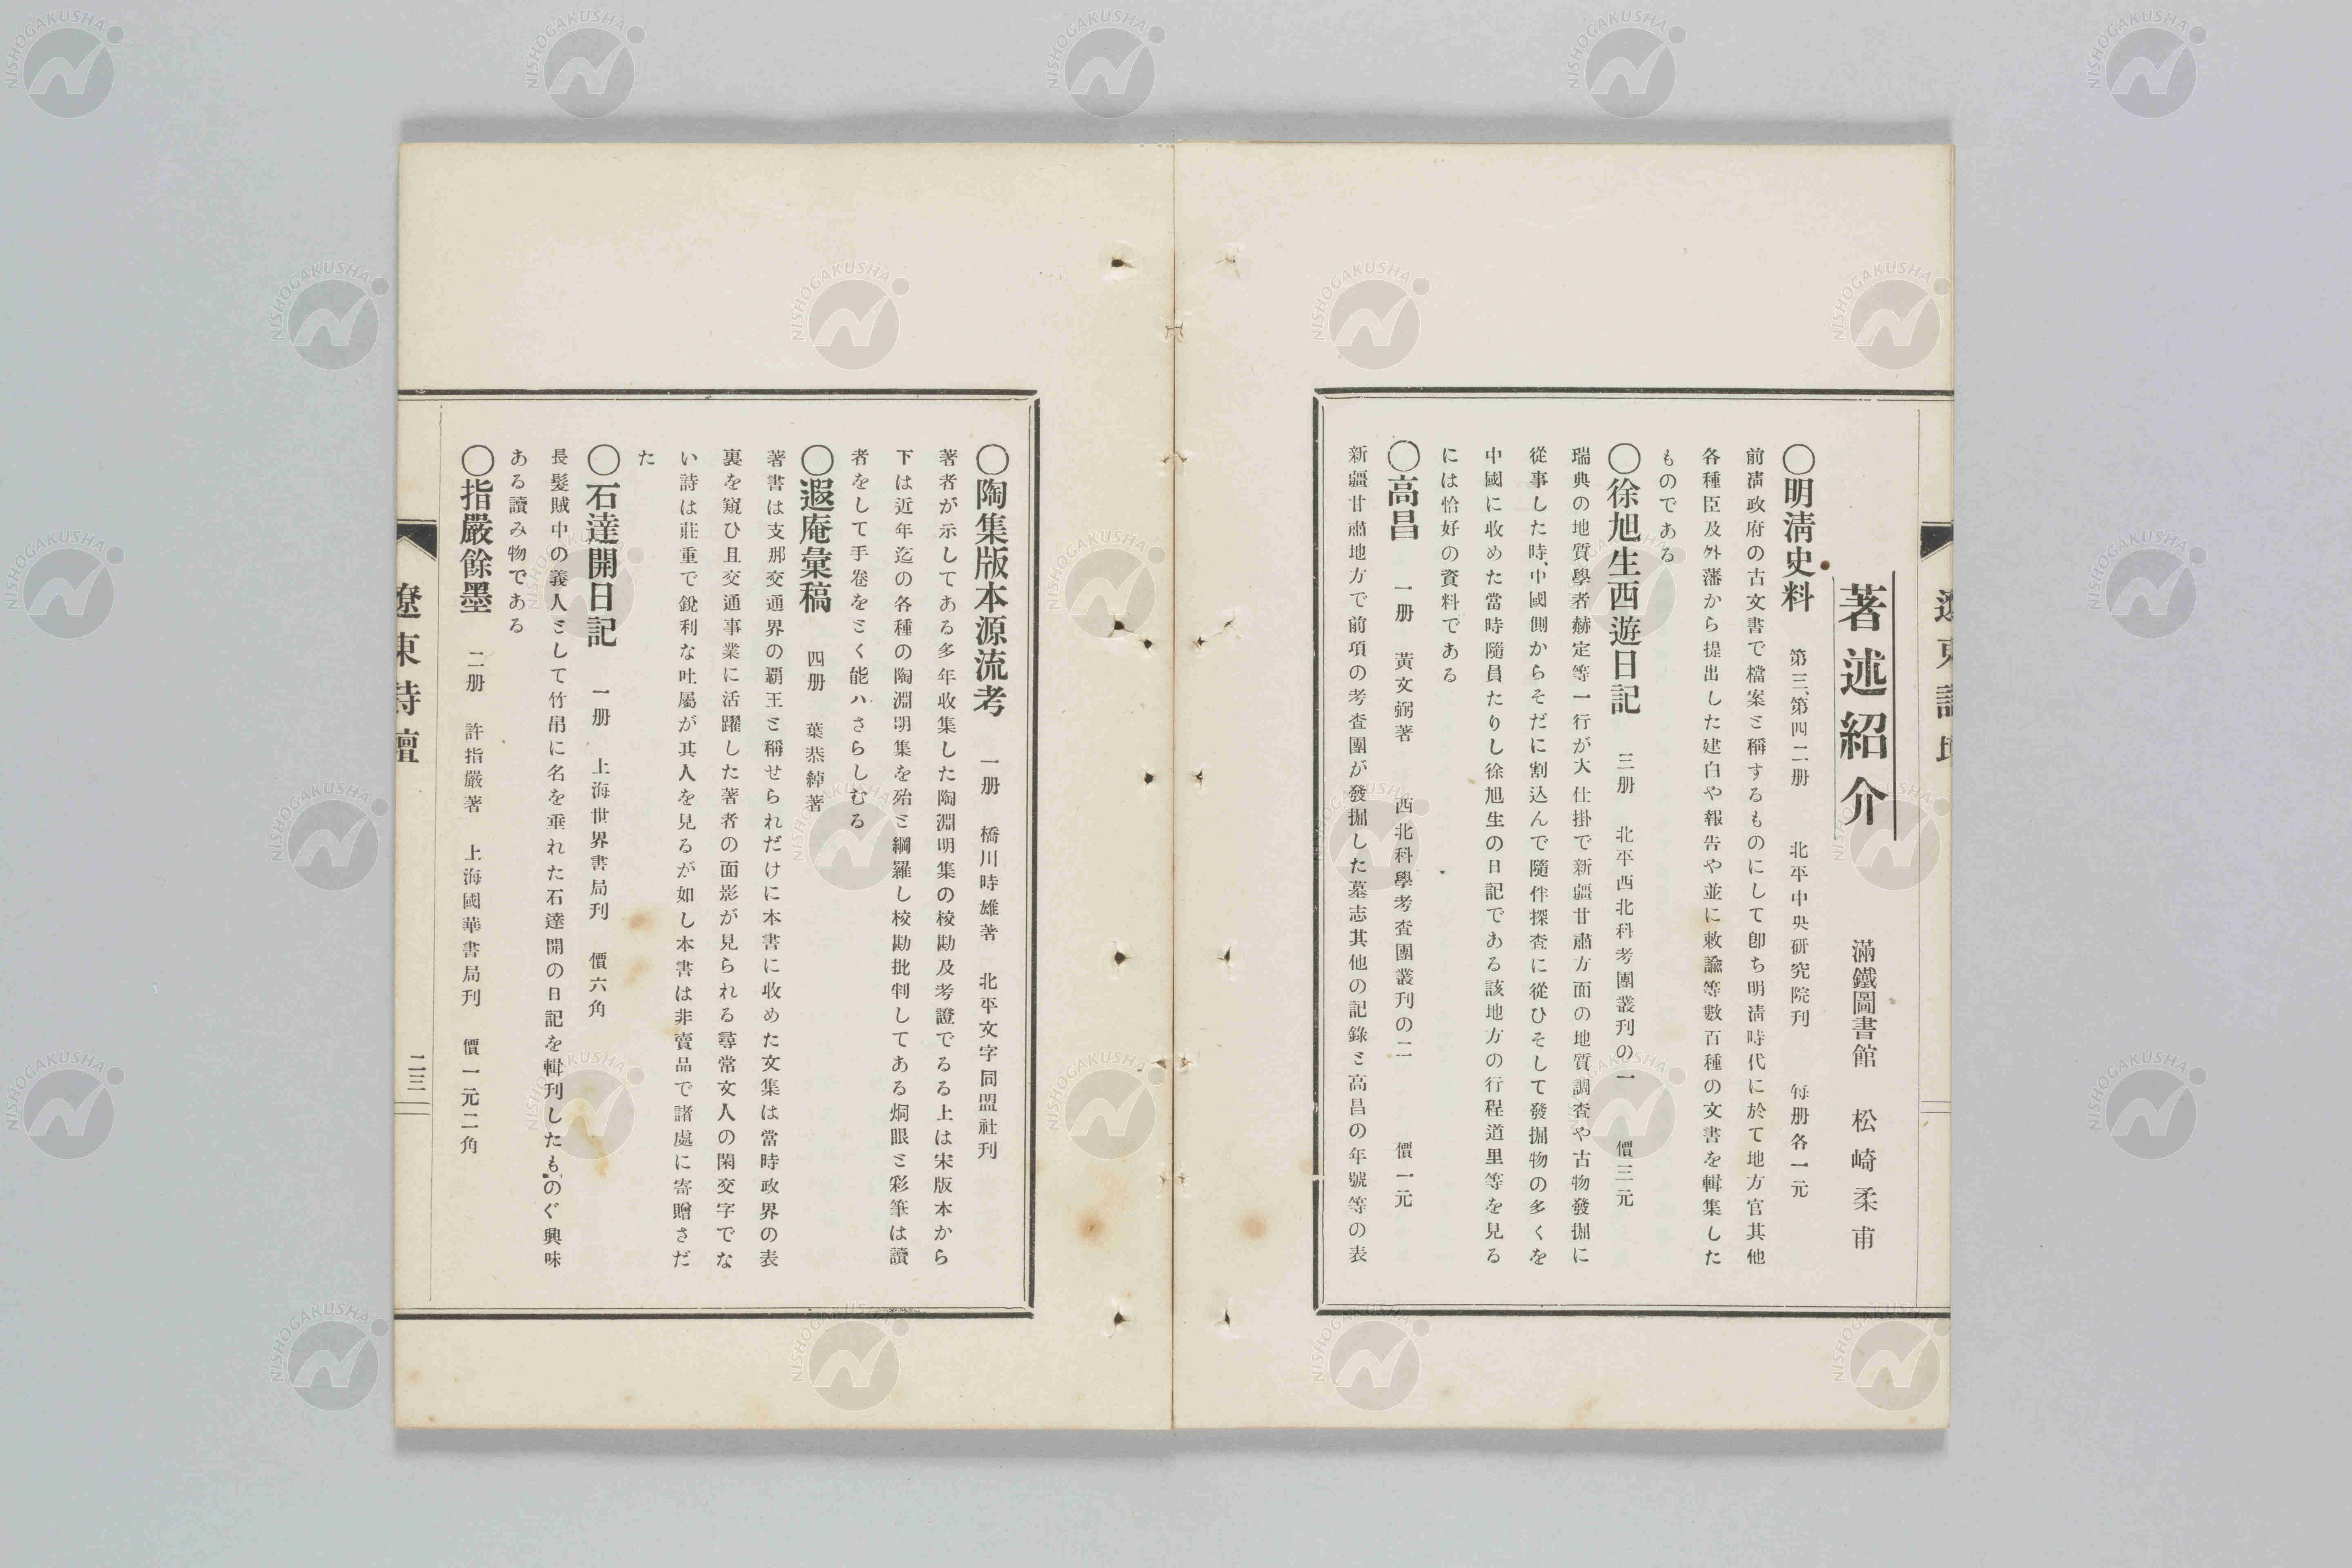 著述紹介
滿鐵圖書館 松崎柔甫
○明淸史料 第三、第四二册 北平中央研究院刊 每册各一元
前淸政府の古文書で檔案と稱するものにして卽ち明淸時代に於て地方官其他
各種臣及外藩から提出した建白や報告や並に敕諭等數百種の文書を輯集した
ものである
○徐旭生西遊日記 三册 北平西北科考團叢刊の一 價三元
瑞典の地質學者赫定等一行が大仕掛で新疆甘肅方面の地質調査や古物發掘に
從事した時、中國側からそだに割込んで隨伴探査に從ひそして發掘物の多くを
中國に收めた當時隨員たりし徐旭生の日記である該地方の行程道里等を見る
には恰好の資料である
○高昌 一册 黃文弼著 西北科學考査團叢刊の二 價一元
新疆甘肅地方で前項の考査團が發掘した墓志其他の記錄と高昌の年號等の表
○陶集版本源流考 一册 橋川時雄著 北平文字同盟社刊
著者が示してある多年收集した陶淵明集の校勘及考證でるる上は宋版本から
下は近年迄の各種の陶淵明集を殆と綱羅し校勘批判してある炯眼と彩筆は讀
者をして手卷をとく能ハさらしむる
○遐庵彙稿 四册 葉恭綽著
著書は支那交通界の覇王と稱せられだけに本書に收めた文集は當時政界の表
裏を窺ひ且交通事業に活躍した著者の面影が見られる尋常文人の閑交字でな
い詩は莊重で銳利な吐屬が其人を見るが如し本書は非賣品で諸處に寄贈さだ
た
○石達開日記 一册 上海世界書局刊 價六角
長髮賊中の義人として竹帛に名を垂れた石達開の日記を輯刊したものぐ興味
ある讀み物である
○指嚴餘墨 二册 許指嚴著 上海國華書局刊 價一元二角
遼東詩壇
二三
NISHOGAKUSHA